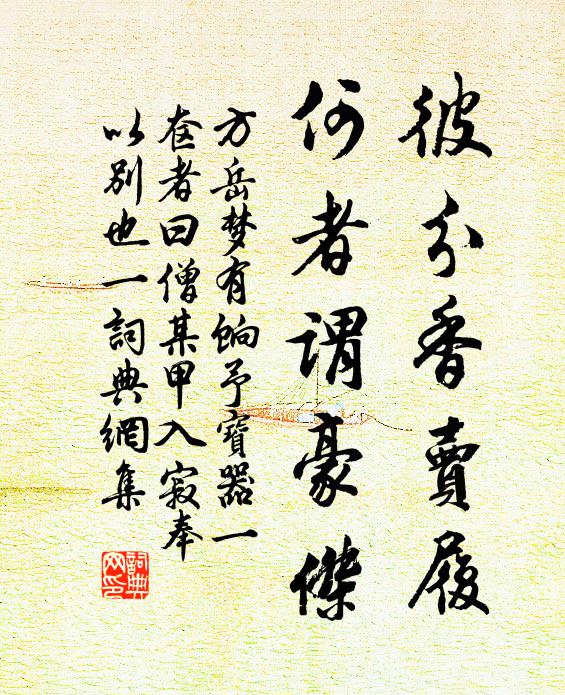 彼分香賣履
何者謂豪傑
方岳梦有餉予寶器一
奁者曰僧某甲入寂奉
以别也一詞典網集
詞典网印